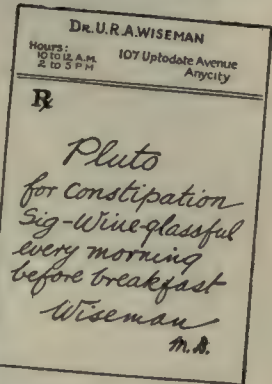 DR. U.R.A. WISEMAN
Hours:
10 TO 12 A.M.
2 TO 5 P M
107 Uptodate Avenue
Anycity
℞
Pluto
for constipation
Sig-Wine-glassful
every morning
before breakfast
Wiseman
M.D.